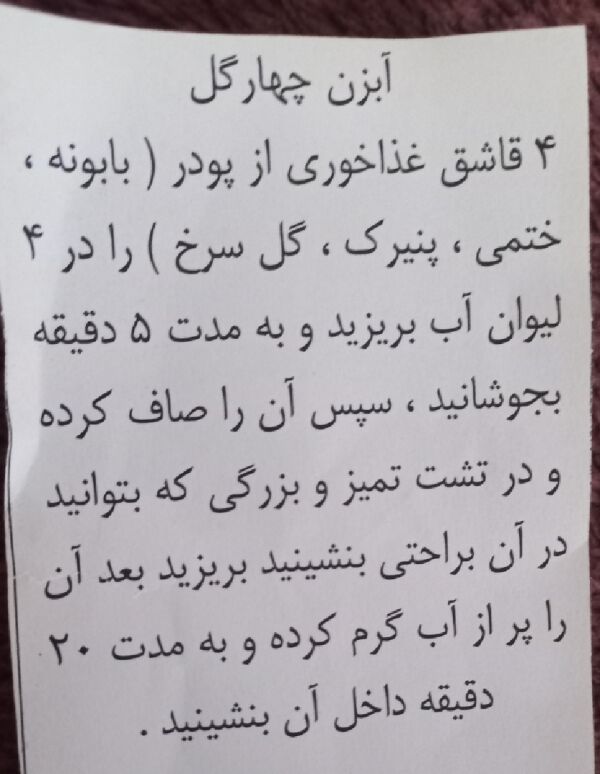 آبزن چهارگل
۴ قاشق غذاخوری از پودر ( بابونه ،
ختمی ، پنیرک ، گل سرخ ) را در ۴
لیوان آب بریزید و به مدت ۵ دقیقه
بجوشانید ، سپس آن را صاف کرده
و در تشت تمیز و بزرگی که بتوانید
در آن براحتی بنشینید بریزید بعد آن
را پر از آب گرم کرده و به مدت ۲۰
دقیقه داخل آن بنشینید .